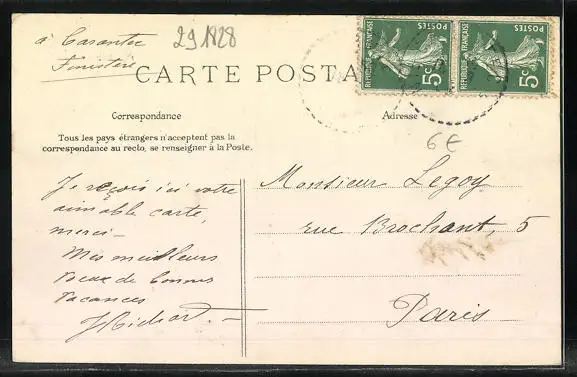 à Carantec
Finistère
291828
CARTE POSTA
REPUBLIQUE FRANÇAISE
POSTES
5c
REPUBLIQUE FRANÇAISE
POSTES
5c
Correspondance
Adresse
Tous les pays étrangers n'acceptent pas la
correspondance au recto, se renseigner à la Poste.
6€
Je reçois ici votre
aimable carte,
merci —
Mes meilleurs
vœux de bonnes
vacances
Monsieur Legoy
rue Brochant, 5
Paris